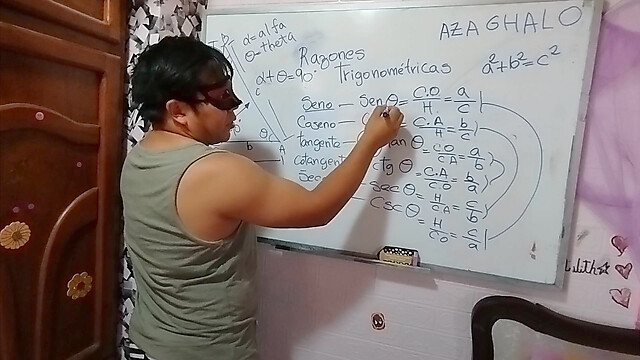 AZAGHALO
α=alfa
θ=theta
α+θ=90°
Razones
Trigonométricas
a²+b²=c²
Seno — Sen θ = C.O/H = a/c
Coseno — C.A/H = b/c
tangente — tan θ = CO/CA = a/b
cotangente ctg θ = C.A/C.O = b/a
Sec — sec θ = H/CA = c/b
— csc θ = H/CO = c/a
c
θ
b
A
B